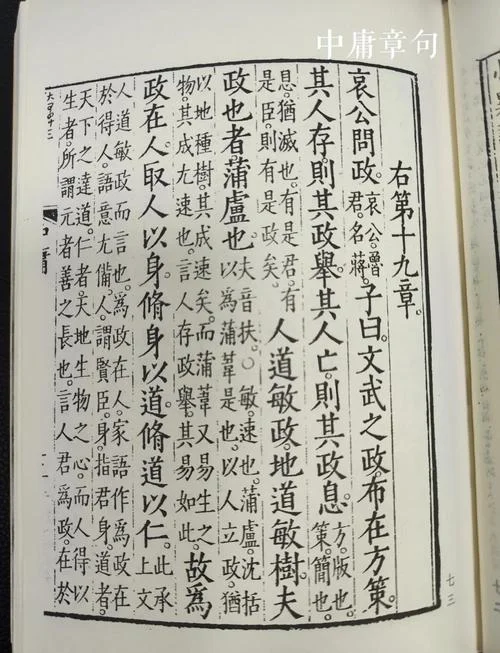 中庸章句
右第十九章。
哀公問政。哀公。魯君。名蔣。子曰。文武之政。布在方策。
其人存。則其政舉。其人亡。則其政息。方。版也。策。簡也。
息。猶滅也。有是君。有是臣。則有是政矣。人道敏政。地道敏樹。夫
政也者。蒲盧也。夫音扶。○敏。速也。蒲盧。沈括以爲蒲葦是也。以人立政。猶
以地種樹。其成速矣。而蒲葦又易生之物。其成尤速也。言人存政舉。其易如此。故爲
政在人。取人以身。脩身以道。脩道以仁。此承上文
人道敏政而言也。爲政在人。家語作爲政在
於得人。語意尤備。人。謂賢臣。身。指君身。道者。
天下之達道。仁者。天地生物之心。而人得以
生者。所謂元者善之長也。言人君爲政。在於
中庸
七三